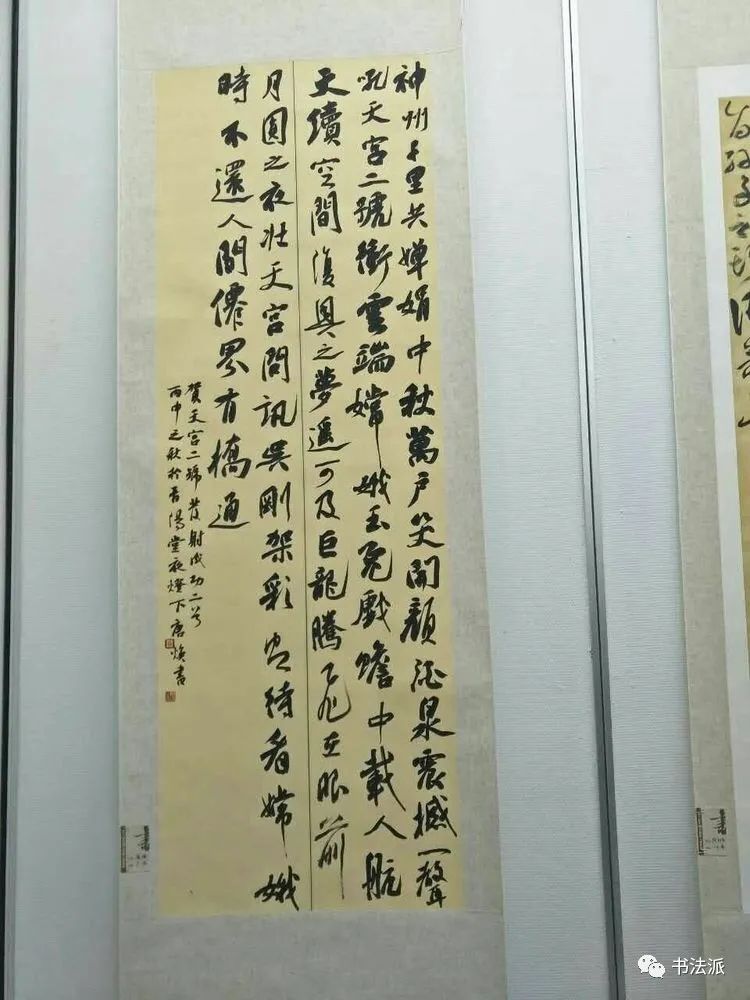 神州千里共嬋娟中秋萬戶笑開顏酒泉震撼一聲
吼天宮二號衝雲端嫦娥玉兔戲蟾中載人航
天續空間復興之夢遥可及巨龍騰飛在眼前
月圓之夜壯天宮問訊吳剛架彩虹待看嫦娥
時不還人間僊界有橋通
賀天宮二號發射成功二首
丙申之秋於晋陽堂夜燈下唐煥書
书法派